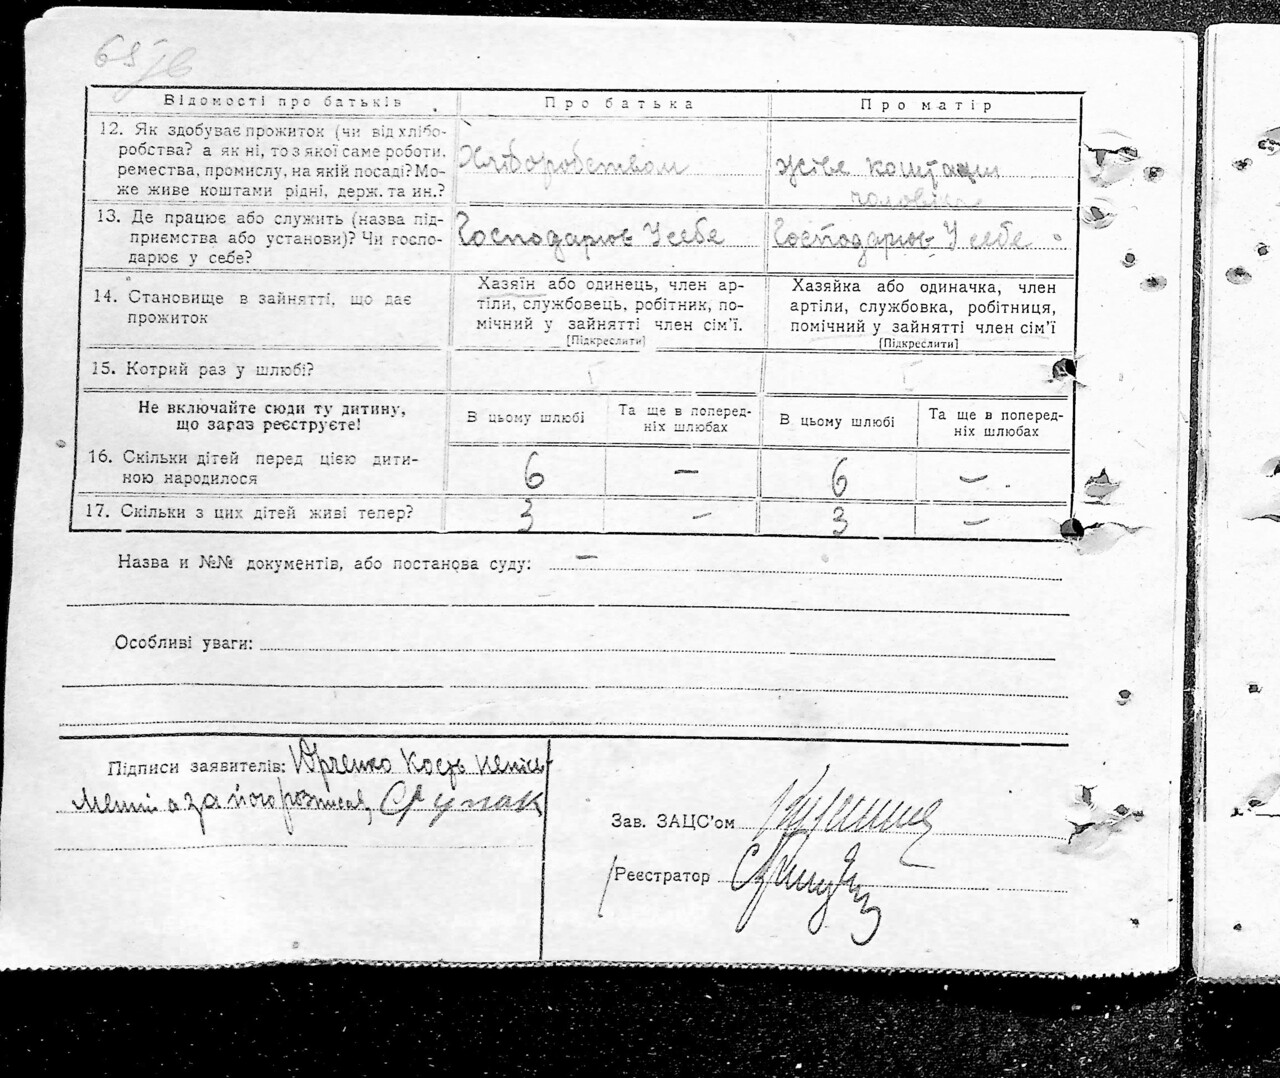 Відомості про батьків
Про батька
Про матір
12. Як здобуває прожиток (чи від хлібо-
робства? а як ні, то з якої саме роботи,
ремества, промислу, на якій посаді? Мо-
же живе коштами рідні, держ. та ин.?
Хліборобством
живе коштами
чоловіка
13. Де працює або служить (назва під-
приємства або установи)? Чи госпо-
дарює у себе?
Господарює У себе
Господарює У себе
14. Становище в зайнятті, що дає
прожиток
Хазяїн або одинець, член ар-
тіли, службовець, робітник, по-
мічний у зайнятті член сім’ї.
[Підкреслити]
Хазяйка або одиначка, член
артіли, службовка, робітниця,
помічний у зайнятті член сім’ї
[Підкреслити]
15. Котрий раз у шлюбі?
I
I
Не включайте сюди ту дитину,
що зараз реєструєте!
В цьому шлюбі
Та ще в поперед-
ніх шлюбах
В цьому шлюбі
Та ще в поперед-
ніх шлюбах
16. Скільки дітей перед цією дити-
ною народилося
6 — 6 —
17. Скільки з цих дітей живі тепер?
3 — 3 —
Назва и №№ документів, або постанова суду: —
Особливі уваги:
Підписи заявителів: Юрченко Кость неписьменні
а за його розписався
Зав. ЗАЦС’ом
Реєстратор